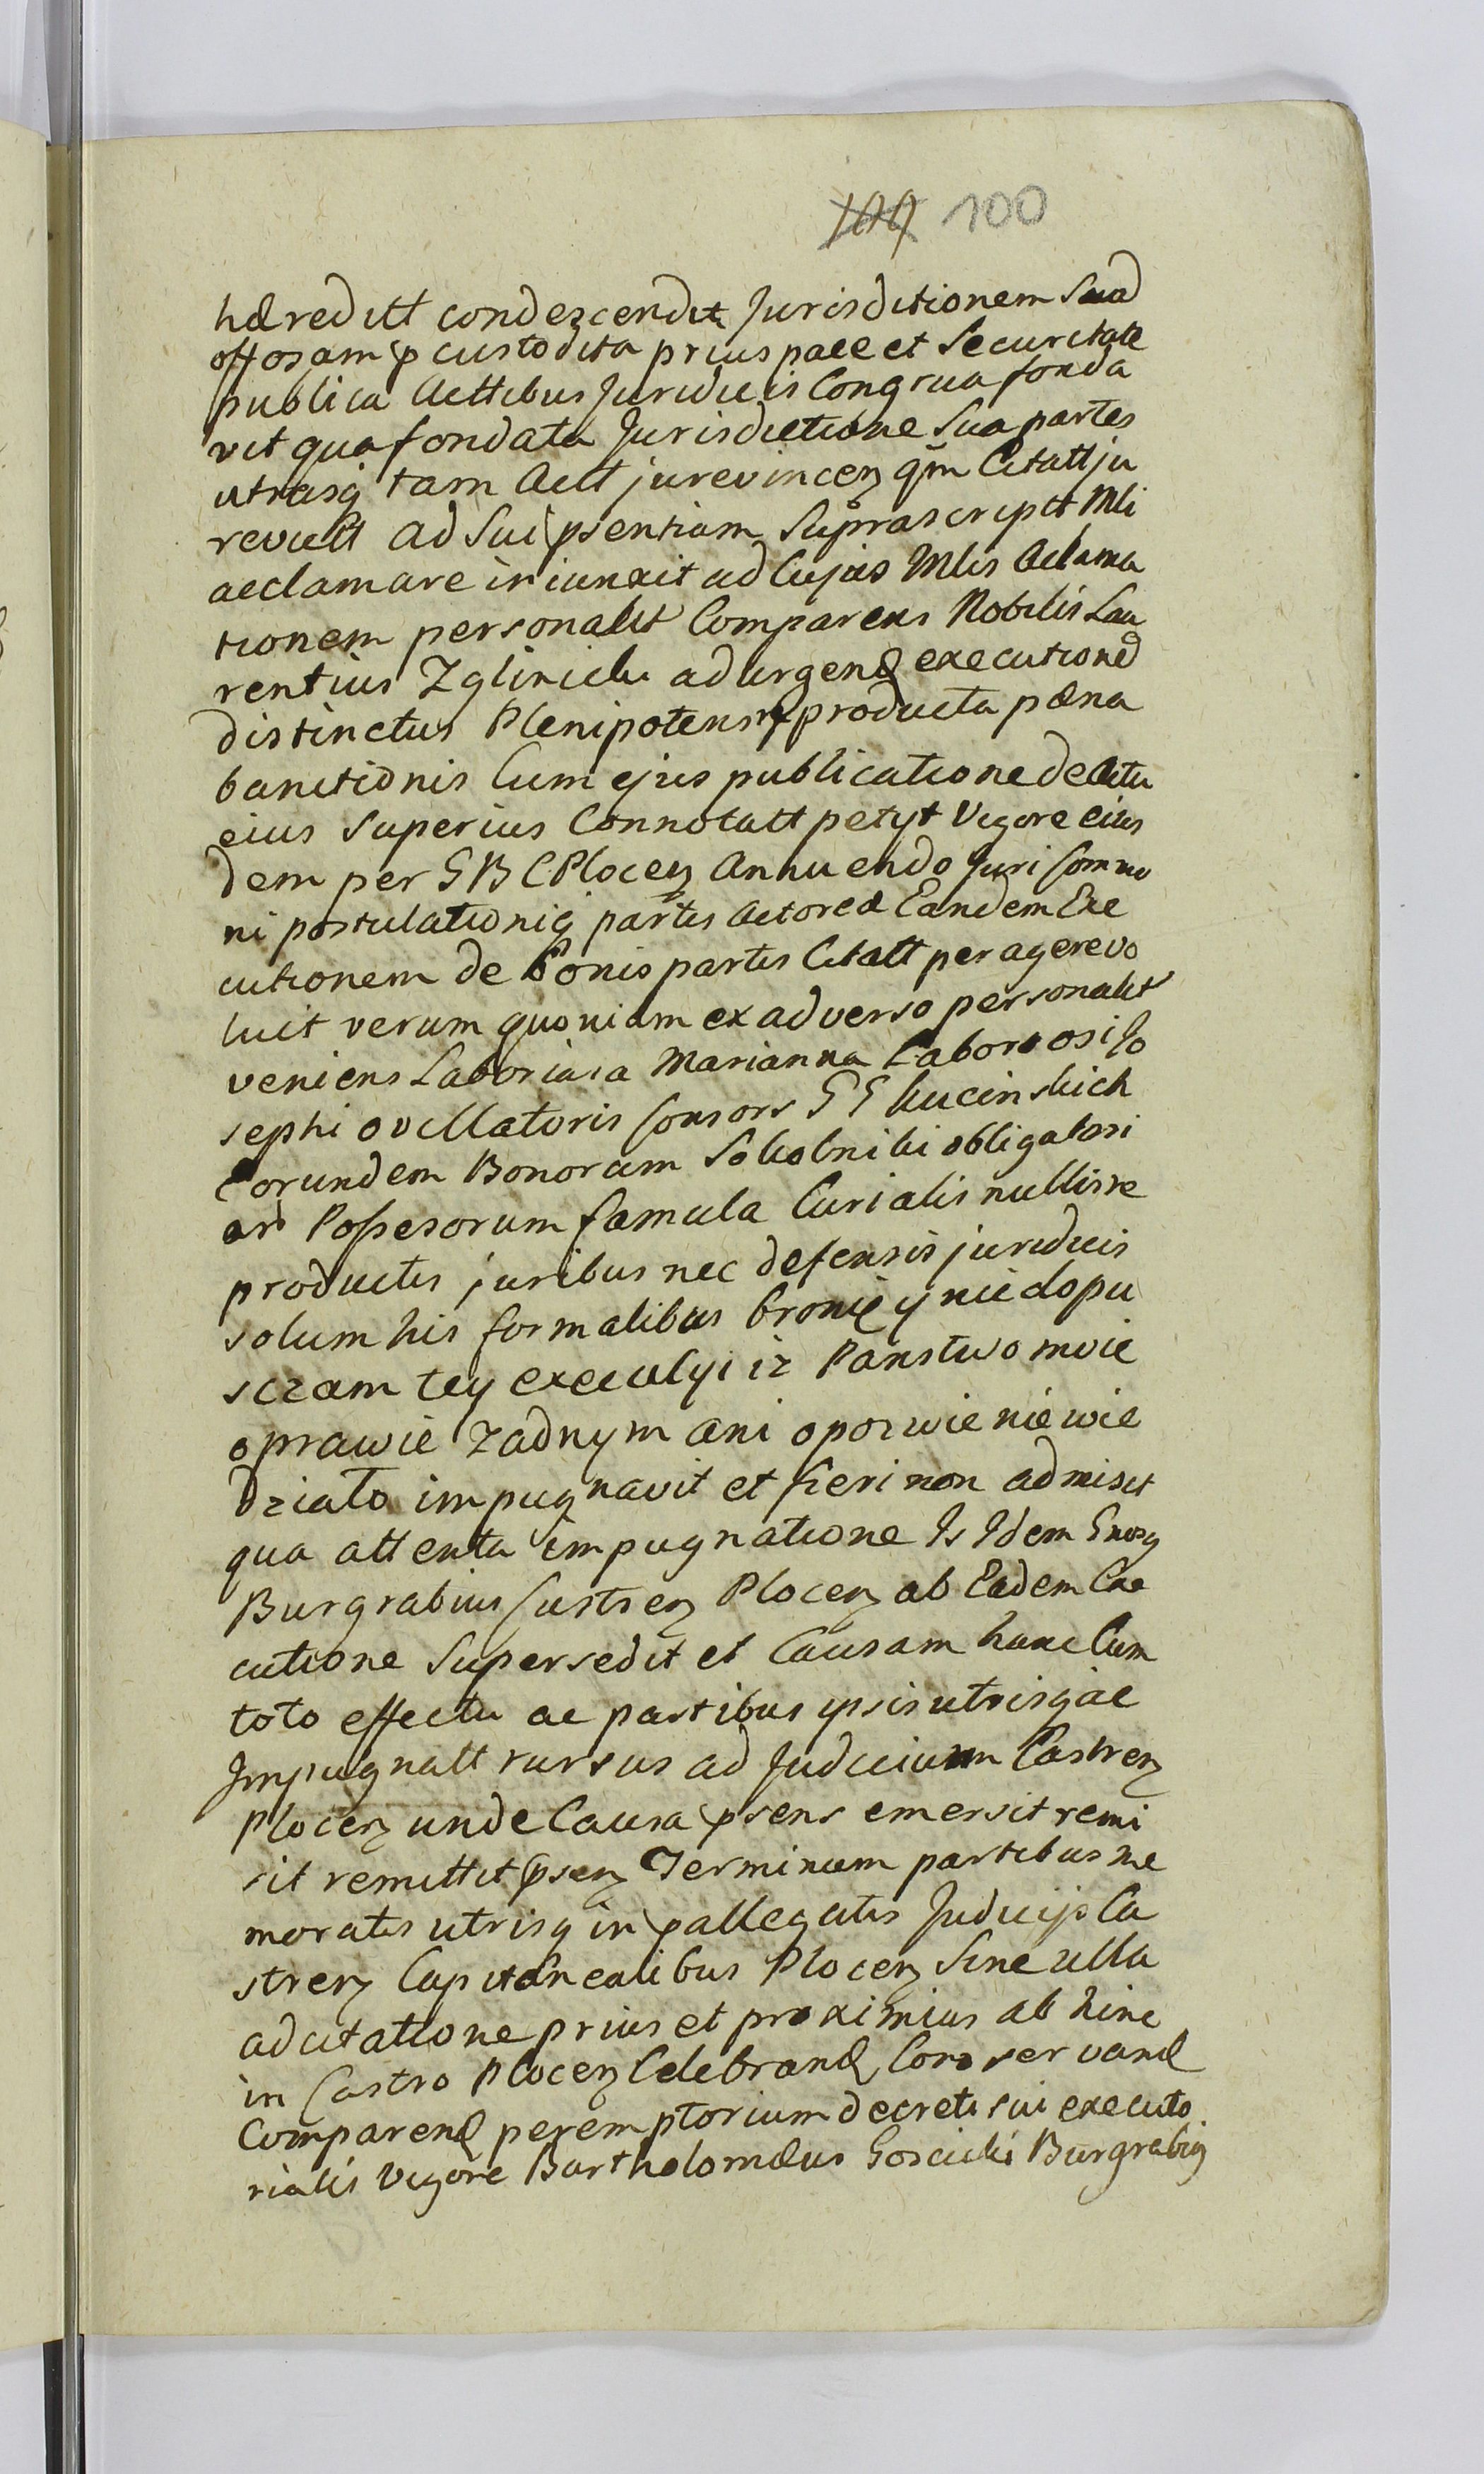 100
hæreditt condescendit Jurisditionem Sua
offosam p custodita prius pace et Securitate
publica Acttibus Juridicis Congrua fonda
vit qua fondata Jurisdictione Sua partes
utrasq tam Actt jurevincen qm Citatt ju
revictt ad Sui psentiam Suprascriptt Mli
acclamare iniunxit ad Cujus Mlis Aclama
tionem personalit Comparens Nobilis Lau
rentius Zglinicki ad urgend executione
distinctus Plenipotens producta pæna
banitionis Cum ejus publicatione de Actu
eius Superius Connotatt petyt Vigore eius
dem per GBCPlocen Annuendo Juri Commu
ni postulationiq partis Actoreæ Eandem Exe
cutionem de Bonis partis Citatt peragere vo
luit verum quoniam ex adverso personalit
veniens Laboriosa Marianna Laboriosi Jo
sephi ovillatoris Consors GG Kucinskich
Eorundem Bonorum Sokolniki obligatori
or Possesorum famula Curialis nullis re
productis juribus nec defensis juridicis
solum his formalibus bronię y niedopu
szczam tey execulyi iz Panstwo moie
oprawie zadnym ani opozwie niewie
działo impugnavit et fieri non admisit
qua attenta impugnatione Is Idem Gnosq
Burgrabius Castren Plocen ab Eadem Exe
cutione Supersedit et Causam hanc Cum
toto effectu ac partibus ipsis utrisq ac
Impugnatt rursus ad Judicium Castren
Plocen unde Causa psens emersit remi
sit remittit psen Terminum partibus me
moratis utrisq in pallegatis Judicijs Ca
stren Capitanealibus Plocen Sine ulla
adcitatione prius et proximius ab hinc
in Castro Plocen Celebrand Conservand
Comparend peremptorium decreti sui executo
rialis Vigore Bartholomæus Goscicki Burgrabiq